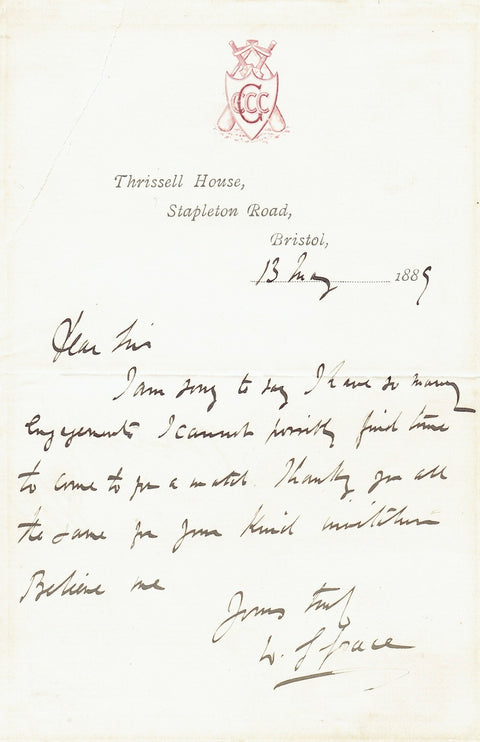 GCCC
Thrissell House,
Stapleton Road,
Bristol,
13 May 1889
Dear Sir
I am sorry to say I have so many
Engagements I cannot possibly find time
to come to for a match. Thanking you all
the same for your kind invitation
Believe me
Yours truly
W. G Grace